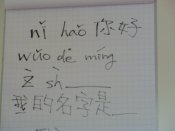 nǐ hǎo 你好
wǒ de míng
zì shì ____
我的名字是____